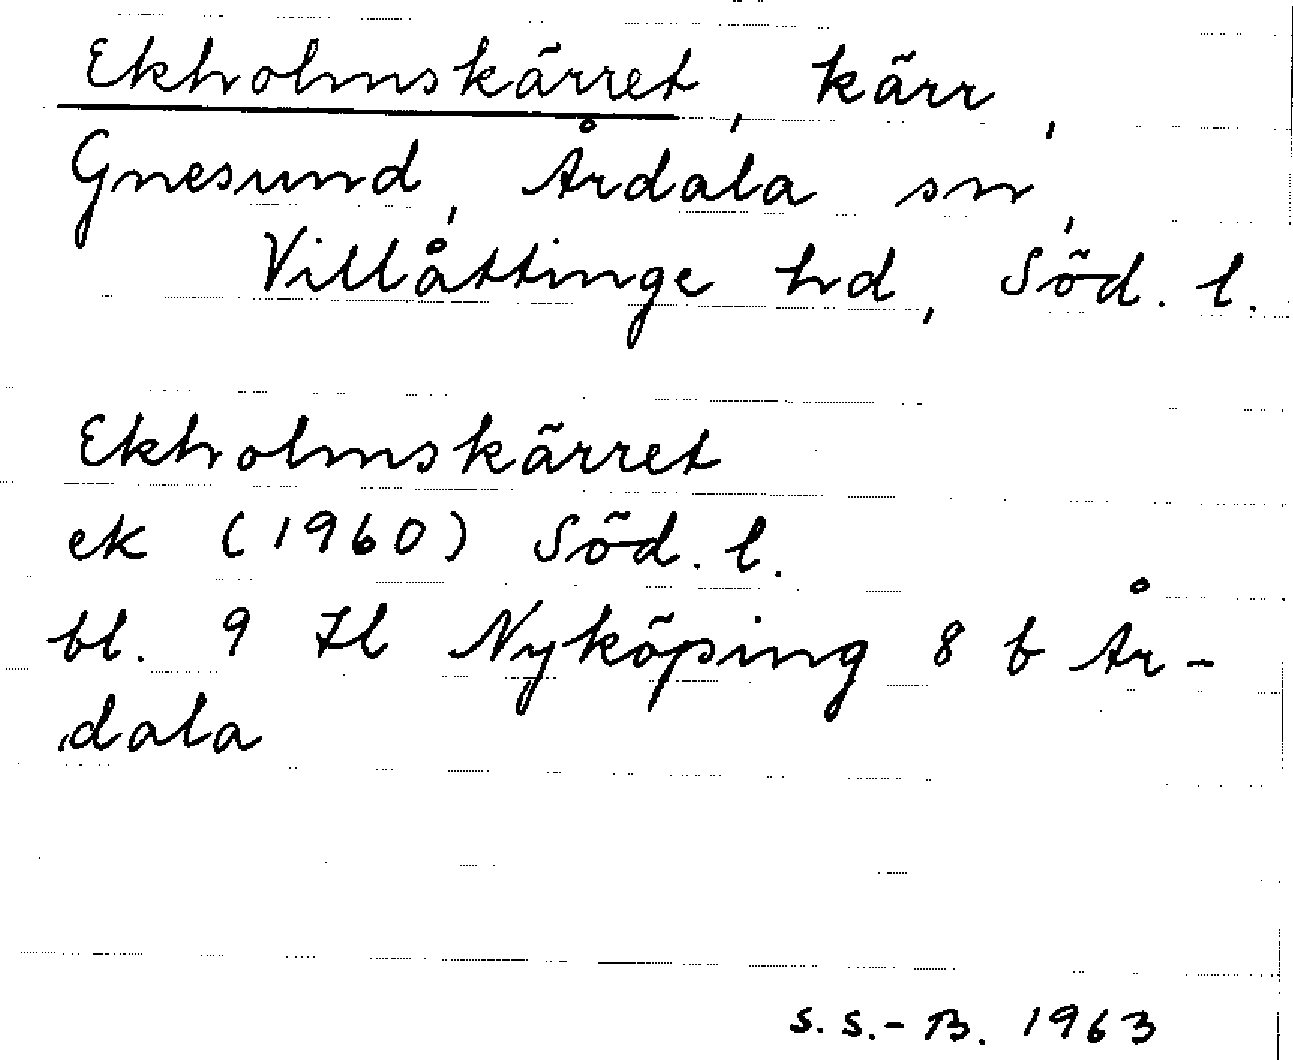 Ekholmskärret, kärr,
Gnesund, Årdala sn,
Villåttinge hd, Söd. l.
Ekholmskärret
ek (1960) Söd. l.
bl. 9 H Nyköping 8 b År-
dala
S. S.-B. 1963